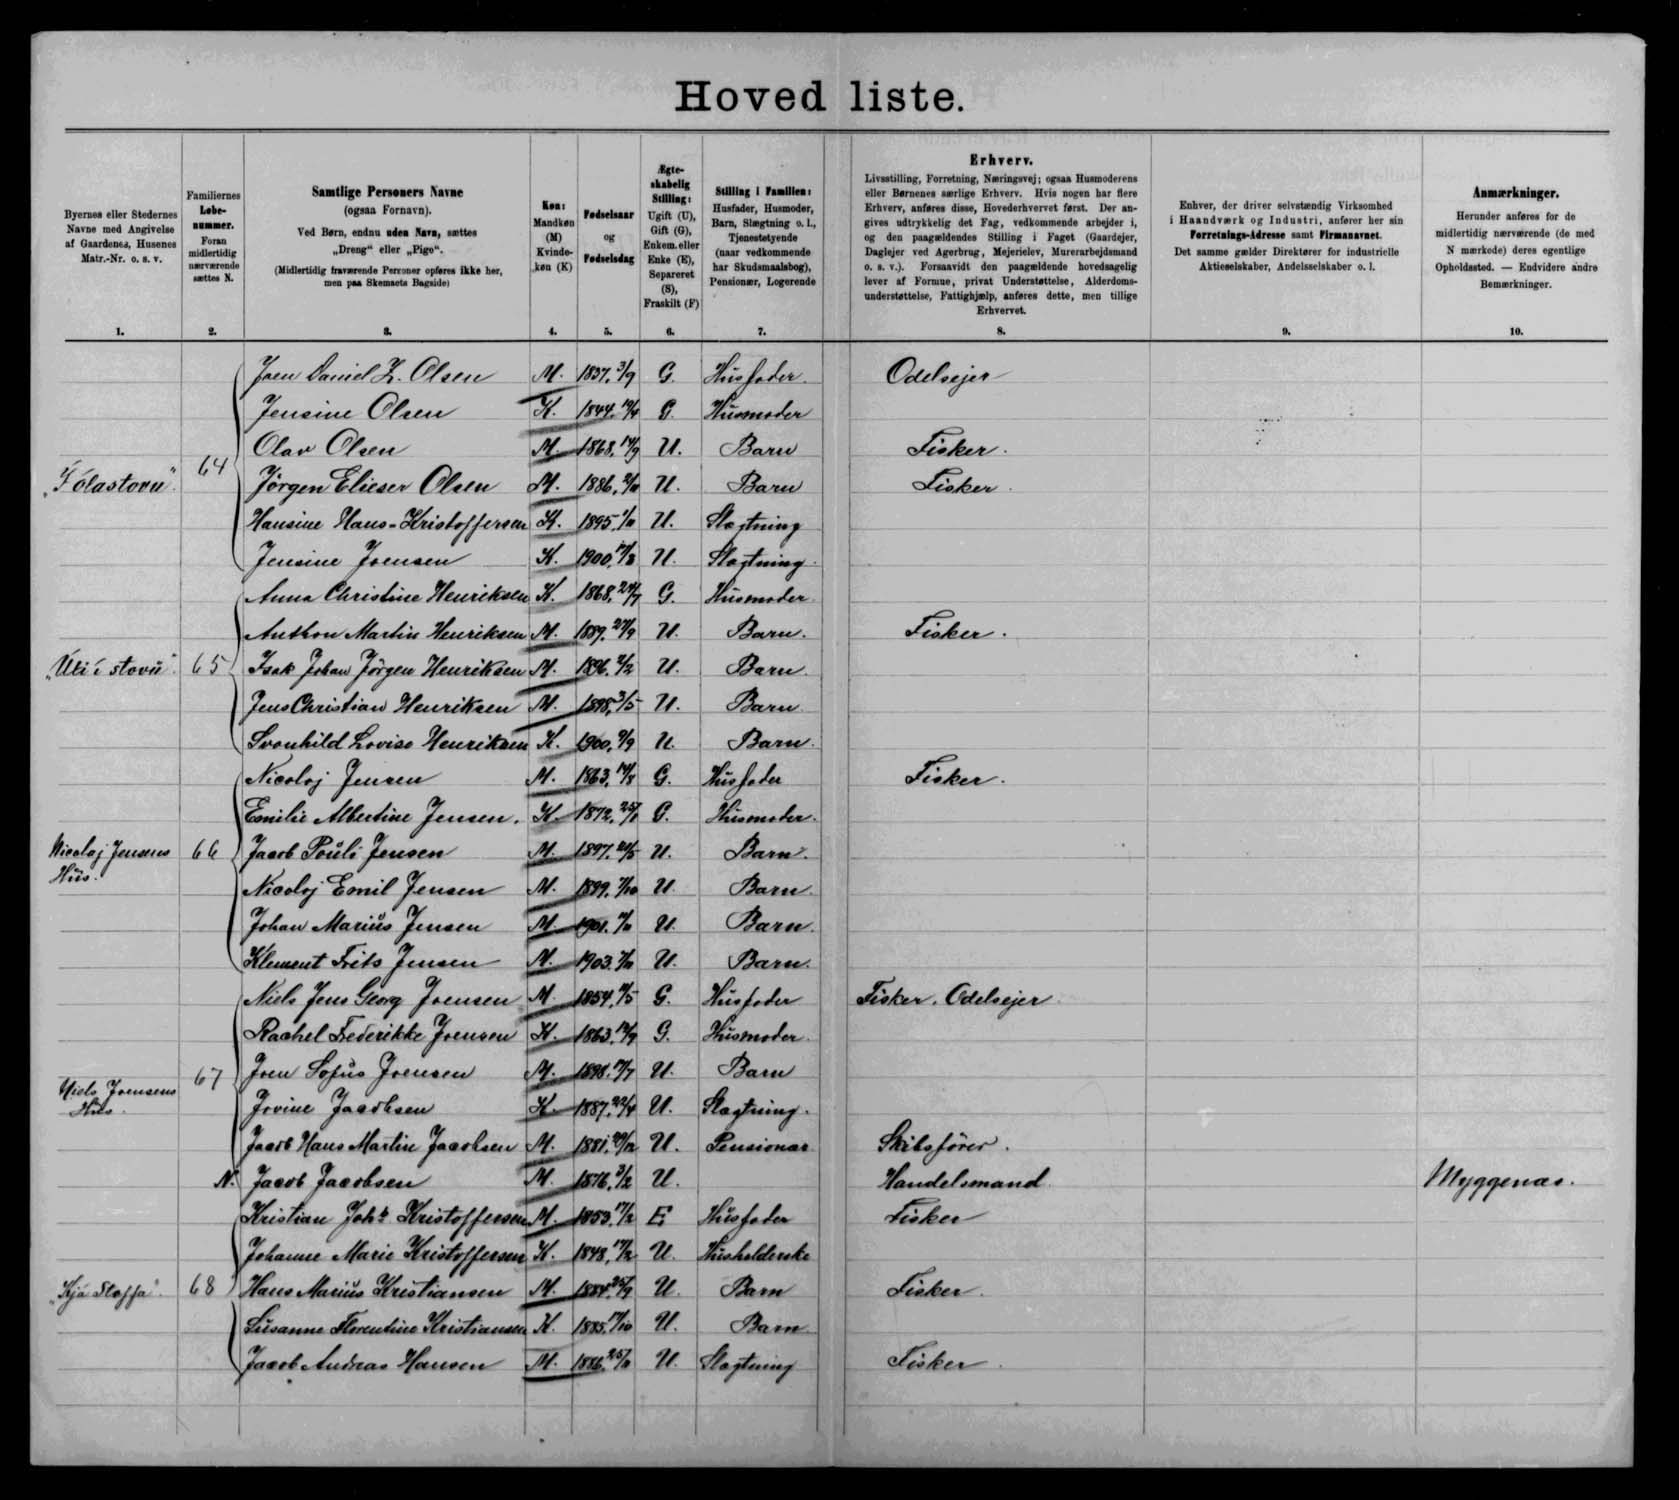 Hoved liste.
Byernes eller Stedernes Navne med Angivelse af Gaardenes, Husenes Matr.-Nr. o. s. v.
Familiernes Løbenummer. Foran midlertidig nærværende sættes N.
Samtlige Personers Navne (ogsaa Fornavn). Ved Børn, endnu uden Navn, sættes „Dreng“ eller „Pige“. (Midlertidig fraværende Personer opføres ikke her, men paa Skemaets Bagside)
Køn: Mandkøn (M) Kvindekøn (K)
Fødselsaar og Fødselsdag
Ægteskabelig Stilling: Ugift (U), Gift (G), Enkem. eller Enke (E), Separeret (S), Fraskilt (F)
Stilling i Familien: Husfader, Husmoder, Barn, Slægtning o. l., Tjenestetyende (naar vedkommende har Skudsmaalsbog), Pensionær, Logerende
Erhverv. Livsstilling, Forretning, Næringsvej; ogsaa Husmoderens eller Børnenes særlige Erhverv. Hvis nogen har flere Erhverv, anføres disse, Hovederhvervet først. Der angives udtrykkelig det Fag, vedkommende arbejder i, og den paagældendes Stilling i Faget (Gaardejer, Daglejer ved Agerbrug, Mejerielev, Murerarbejdsmand o. s. v.). Forsaavidt den paagældende hovedsagelig lever af Formue, privat Understøttelse, Alderdomsunderstøttelse, Fattighjælp, anføres dette, men tillige Erhvervet.
Enhver, der driver selvstændig Virksomhed i Haandværk og Industri, anfører her sin Forretnings-Adresse samt Firmanavnet. Det samme gælder Direktører for industrielle Aktieselskaber, Andelsselskaber o. l.
Anmærkninger. Herunder anføres for de midlertidig nærværende (de med N mærkede) deres egentlige Opholdssted. — Endvidere andre Bemærkninger.
1. 2. 3. 4. 5. 6. 7. 8. 9. 10.
Joen Daniel Z. Olsen M. 1837, 3/9 G. Husfader. Odelsejer
Jensine Olsen K. 1844, G. Husmoder
Olav Olsen M. 1868, 14/9 U. Barn Fisker.
64 Jörgen Elieser Olsen M. 1886, U. Barn Fisker.
Hansine Hans-Kristoffersen K. 1895, U. Slægtning
Jensine Joensen K. 1900, U. Slægtning.
Anna Christine Henriksen K. 1868, 24/7 G. Husmoder.
Anthon Martin Henriksen M. 1889, 27/9 U. Barn. Fisker.
„Uti í stovu“. 65 Isak Johan Jörgen Henriksen M. 1896, U. Barn.
Jens Christian Henriksen M. 1898, 3/5 U. Barn
Svanhild Lovise Henriksen K. 1900, U. Barn.
Nicolaj Jensen M. 1863, G. Husfader Fisker.
Emilie Albertine Jensen. K. 1872, G. Husmoder.
Nicolaj Jensens Hus. 66 Jacob Pouli Jensen M. 1897, U. Barn.
Nicolaj Emil Jensen M. 1899, U. Barn.
Johan Marius Jensen M. 1901, U. Barn.
Klement Frits Jensen M. 1903, U. Barn.
Niels Jens Georg Joensen M. 1854, G. Husfader Fisker. Odelsejer
Rachel Frederikke Joensen K. 1863, G. Husmoder.
67 Joen Sofus Joensen M. 1898, U. Barn
Niels Joensens Hus. Jovine Jacobsen K. 1887, 22/4 U. Slægtning.
Jacob Hans Martin Jacobsen M. 1881, U. Pensionær Skibsfører.
N. Jacob Jacobsen M. 1876, 3/2 U. Handelsmand Myggenæs.
Kristian Joh. Kristoffersen M. 1853, 17/2 E Husfader Fisker
Johanne Marie Kristoffersen K. 1848, U. Husholderske
68 Hans Marius Kristiansen M. 1884, 25/9 U. Barn Fisker.
Susanne Florentine Kristiansen K. 1885, 17/10 U. Barn.
Jacob Andreas Hansen M. 1886, U. Slægtning Fisker.